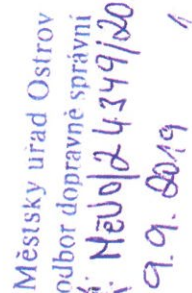 Městský úřad Ostrov
odbor dopravně správní
MěÚO/24349/20
9.9. 2019